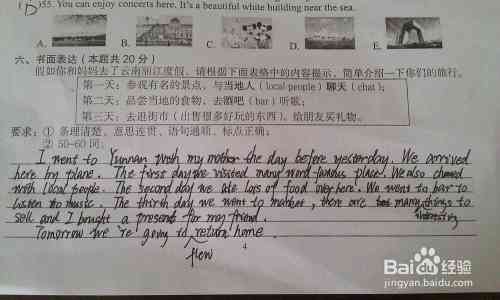 D)55. You can enjoy concerts here. It's a beautiful white building near the sea.
A. B. C. D. E.
六、书面表达(本题共20分)
假如你和妈妈去了云南丽江度假,请根据下面表格中的内容提示,简单介绍一下你们的旅行。
第一天:参观有名的景点,与当地人(local people)聊天(chat);
第二天:品尝当地的食物,去酒吧(bar)听歌;
第三天:去逛街市(出售很多好玩的东西),给朋友买礼物。
要求:① 条理清楚、意思连贯、语句通顺、标点正确;
② 50-60词;
I went to Yunnan with my mother the day before yesterday. We arrived
here by plane. The first day we visited many famous place. We also chated
with local people. The second day we ate lots of food over here. We went to bar to
listen to music. The thirth day we went to market, there are many things to
interesting
sell and I bought a present for my friend.
Tomorrow we're going to return home.
flew
4
Baidu 经验
jingyan.baidu.com